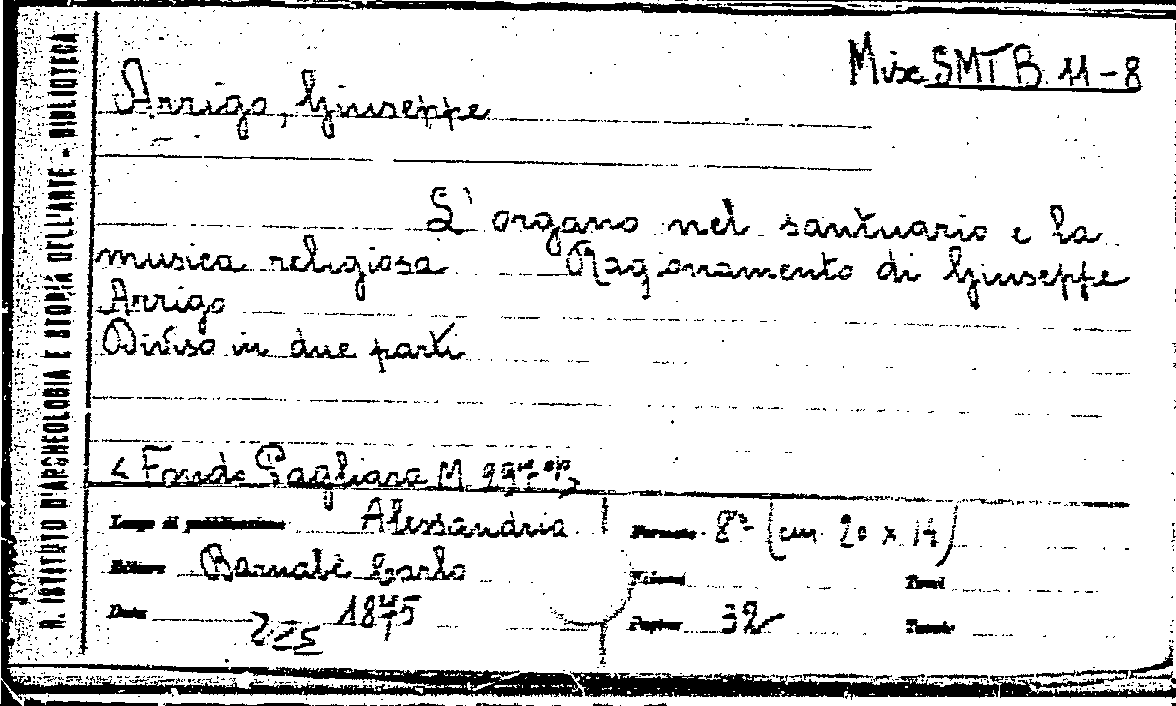 R. ISTITUTO D'ARCHEOLOGIA E STORIA DELL'ARTE - BIBLIOTECA
Misc SMT B 11-8
Arrigo, Giuseppe
L'organo nel santuario e la
musica religiosa Ragionamento di Giuseppe
Arrigo
Diviso in due parti
< Fondo Pagliara M
Luogo di pubblicazione Alessandria Formato 8º (cm. 20 x 14)
Editore Barnabè Carlo Volumi Tomi
Data 1875 Pagine 32 Tavole
225